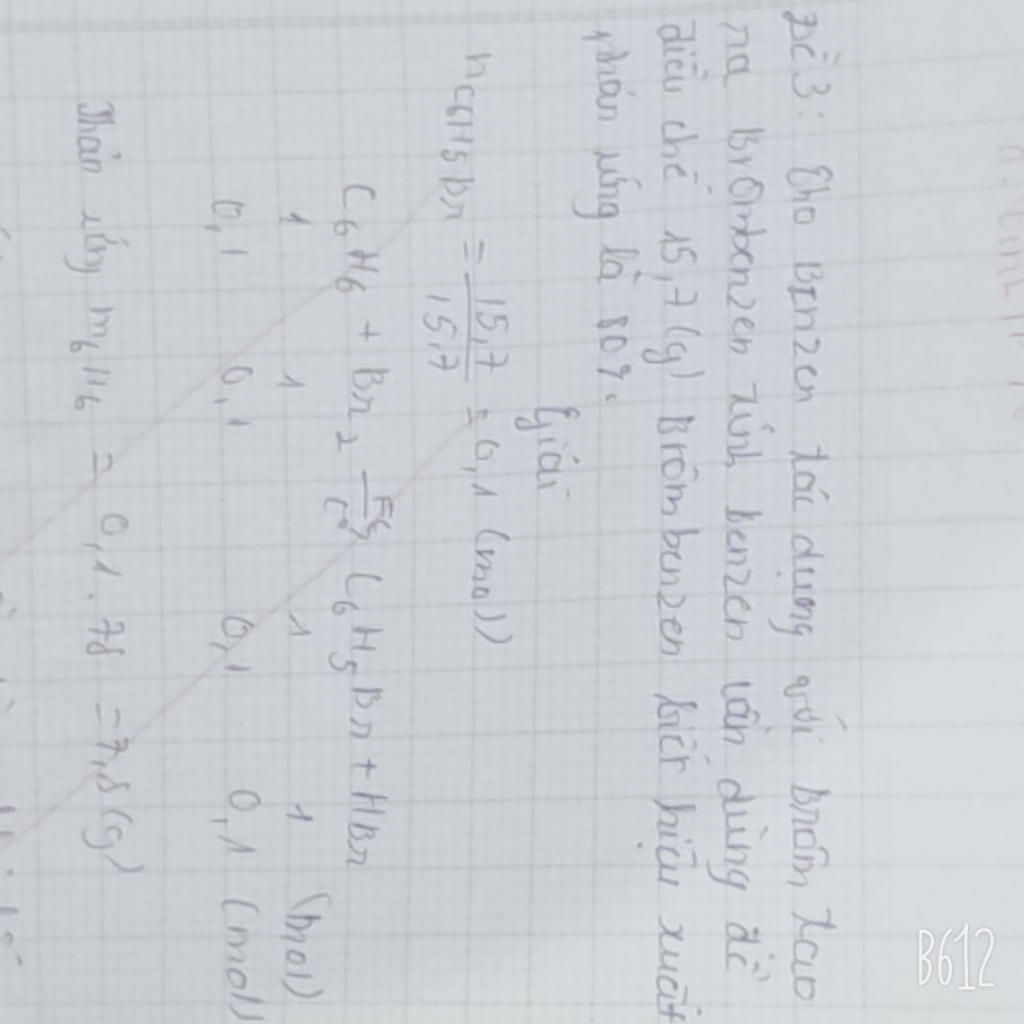 Đề 3: Cho Benzen tác dụng với brôm tạo
ra Brômbenzen tính benzen cần dùng để
điều chế 15,7 (g) Brômbenzen biết hiệu xuất
phản ứng là 80%
Giải
nC6H5Br = 15,7 / 15,7 = 0,1 (mol)
C6H6 + Br2 Fe t° → C6H5Br + HBr
1 1 1 1 (mol)
0,1 0,1 0,1 0,1 (mol)
Phản ứng m6H6 = 0,1 . 78 = 7,8 (g)
B612